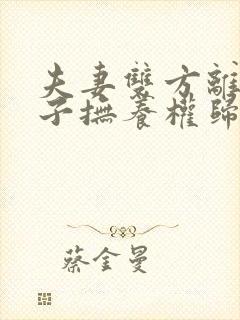 夫妻雙方離
子撫養權歸
蔡金曼